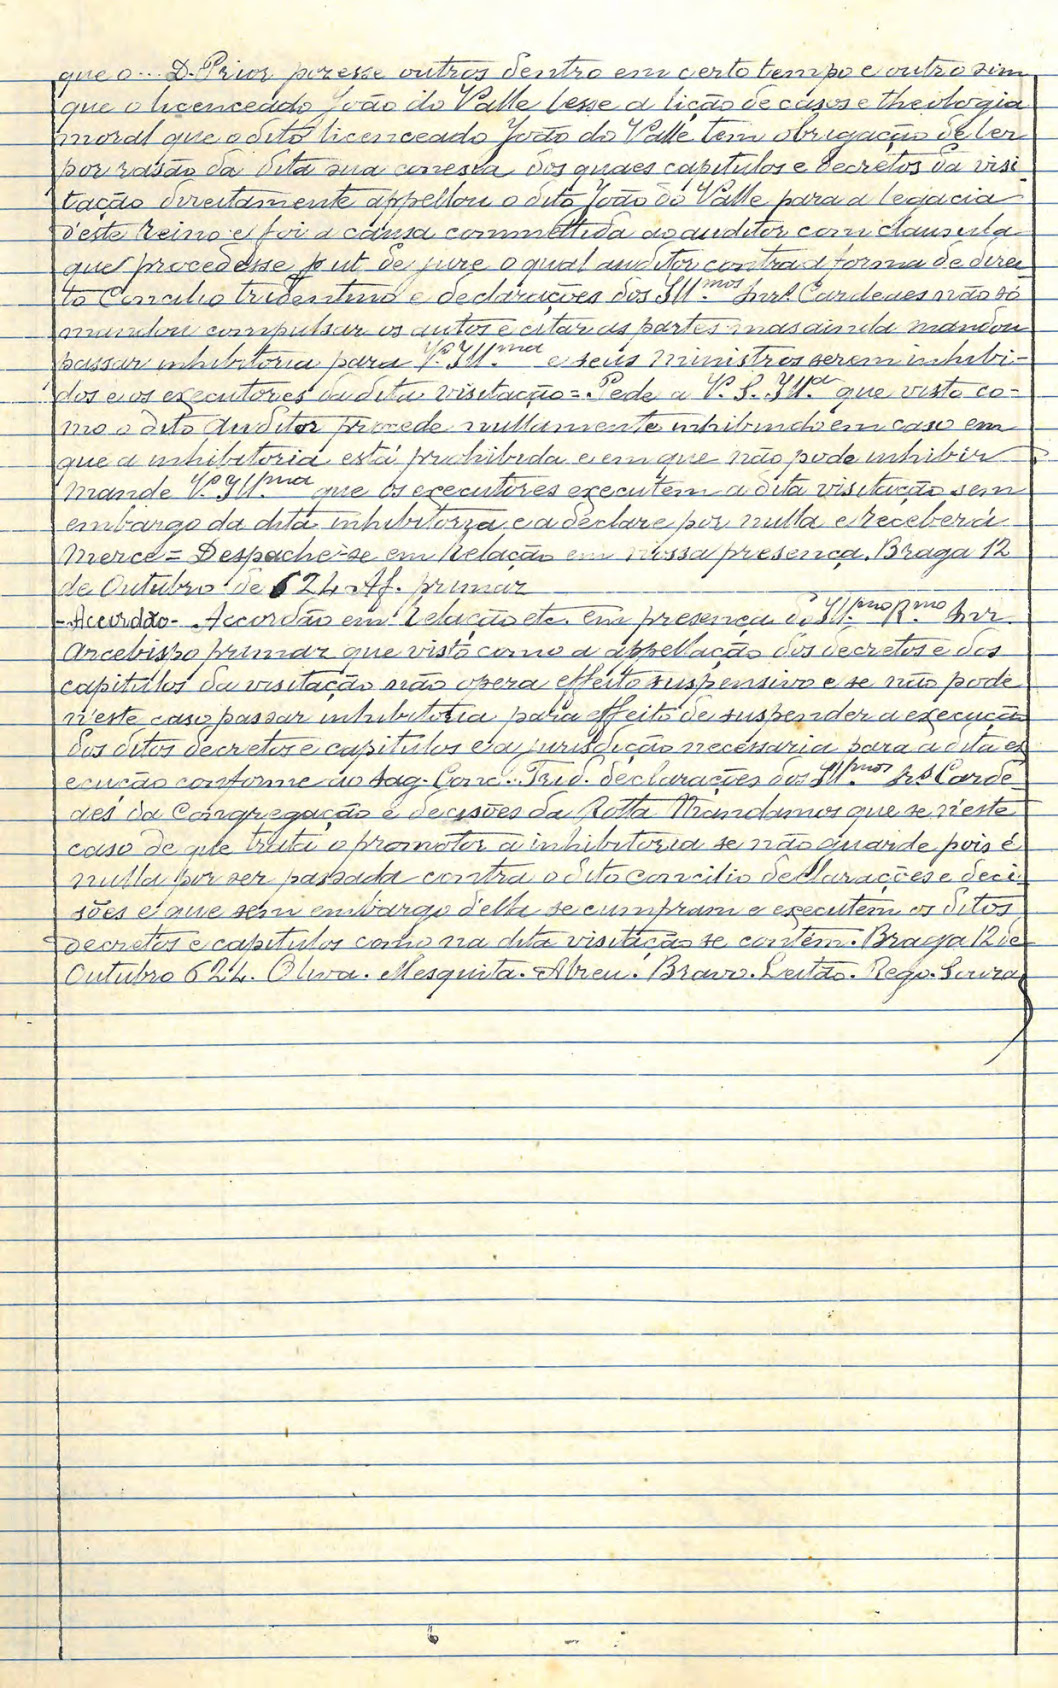 que o... D. Prior posesse outros dentro em certo tempo e outro sim
que o licenceado João do Valle lesse a lição de casos e theologia
moral que o dito licenceado João do Valle tem obrigação de ler
por rasão da dita sua conesia dos quaes capitulos e decretos da visi-
tação direitamente appellou o dito João do Valle para a legacia
d'este Reino e foi a causa commettida ao auditor com clausula
que procedesse put de jure o qual auditor contra a forma de direi-
to Concilio tridentino e declarações dos Ill.mos Snrs Cardeaes não só
mandou compulsar os autos e citar as partes mas ainda mandou
passar inhibitoria para V. Ill.ma e seus ministros serem inhibi-
dos e os executores da dita visitação =. Pede a V. S. Ill.a que visto co-
mo o dito Auditor procede nullamente inhibindo em caso em
que a inhibitoria está prohibida e em que não pode inhibir
Mande V. Ill.ma que os executores executem a dita visitação sem
embargo da dita inhibitoria e a declare por nulla e receberá
Merce = Despache-se em Relação em nossa presença. Braga 12
de Outubro de 624 Af. primaz
- Accordão - Accordão em Relação etc. em presença do Ill.mo R.mo Snr.
Arcebispo primaz que visto como a appellação dos decretos e dos
capitulos da visitação não opera effeito suspensivo e se não pode
n'este caso passar inhibitoria para effeito de suspender a execução
dos ditos decretos e capitulos e a jurisdição necessaria para a dita ex
ecução conforme ao Sag. Conc.. Trid. declarações dos Ill.mos Srs Carde-
aes da Congregação e decisões da Rotta Mandamos que se n'este
caso de que trata o promotor a inhibitoria se não guarde pois é
nulla por ser passada contra o dito concilio declarações e deci-
sões e que sem embargo d'ella se cumpram e executem os ditos
decretos e capitulos como na dita visitação se contém. Braga 12 de
Outubro 624. Oliva. Mesquita. Abreu. Bravo. Leitão. Rego. Souza